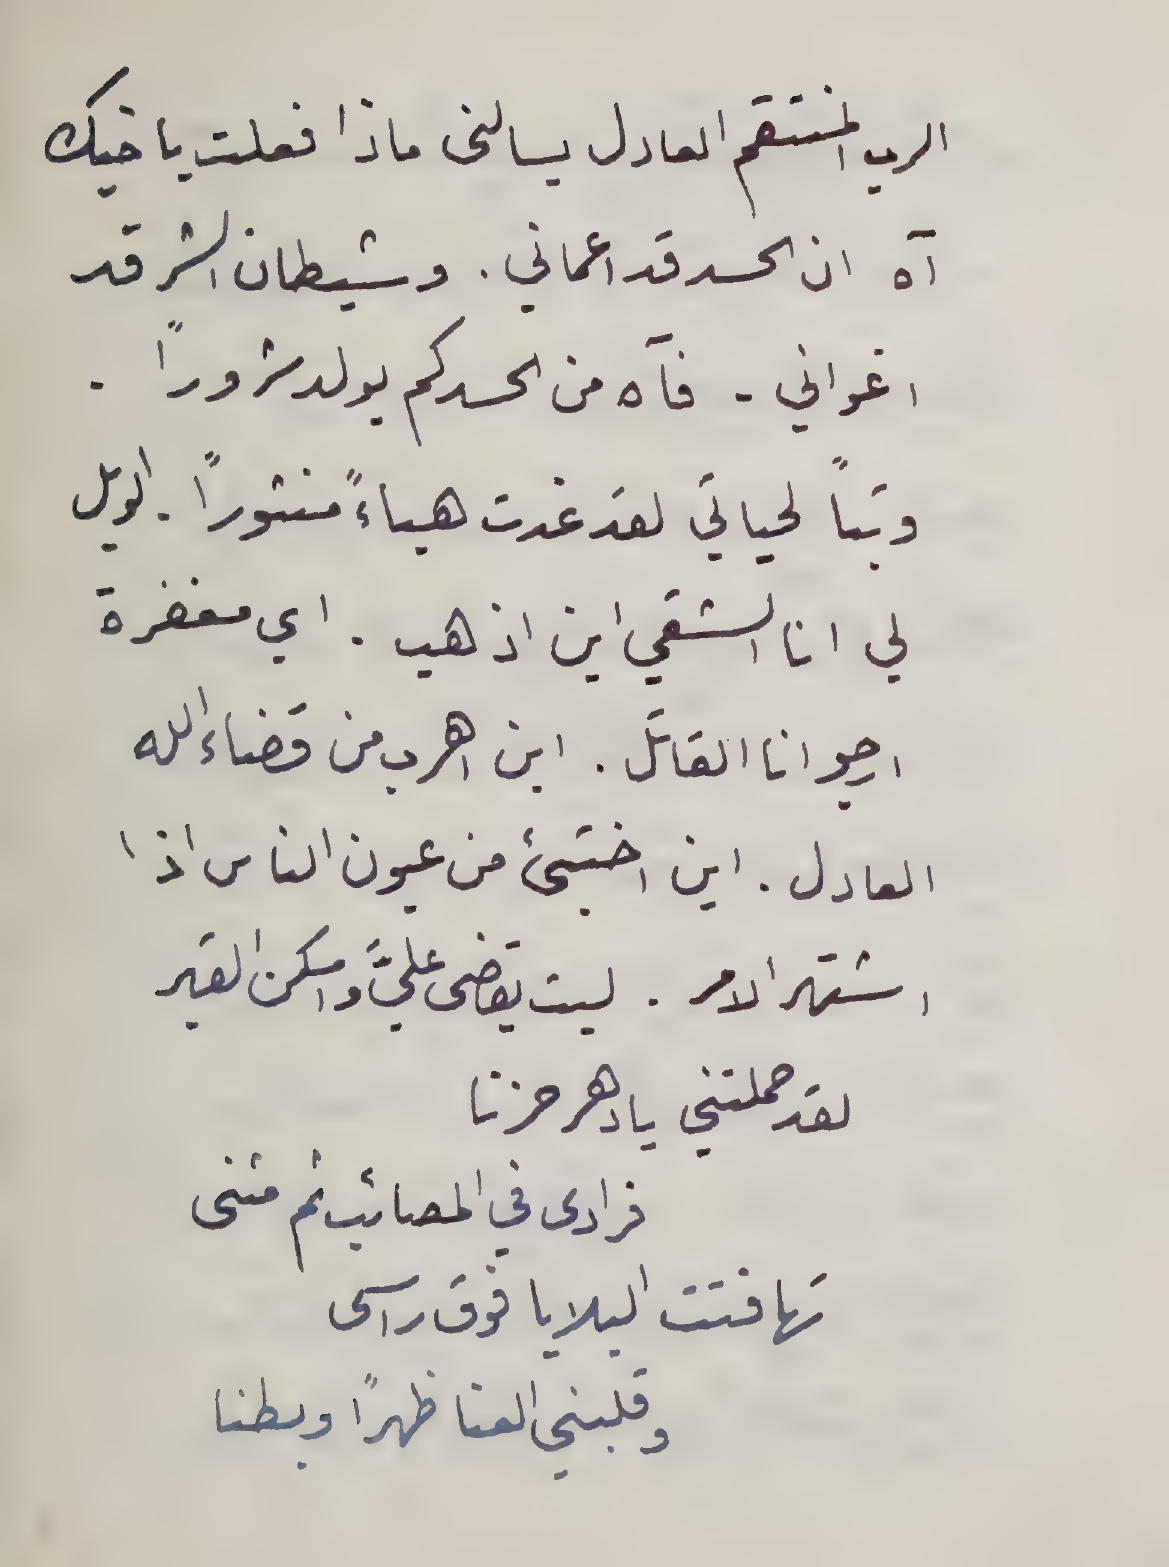 الرب المنتقم العادل يسالنى ماذا فعلت باخيك
آه ان الحسد قد اعماني . وشيطان الشر قد
اغواني - فآه من الحسد كم يولد شرورًا .
وتبًا لحياتي لقد غدت هباءً منثورًا . الويل
لي انا الشقي اين اذهب . اي مغفرة
ارجو انا القاتل . اين اهرب من قضاء الله
العادل . اين اختبئ من عيون الناس اذا
اشتهر الامر . ليت يقضى عليَّ واسكن القبر
لقد حملتني يا دهر حزنا
فرادى في المصائب ثم مثنى
تهافتت البلايا فوق راسى
وقلبني العنا ظهرًا وبطنا